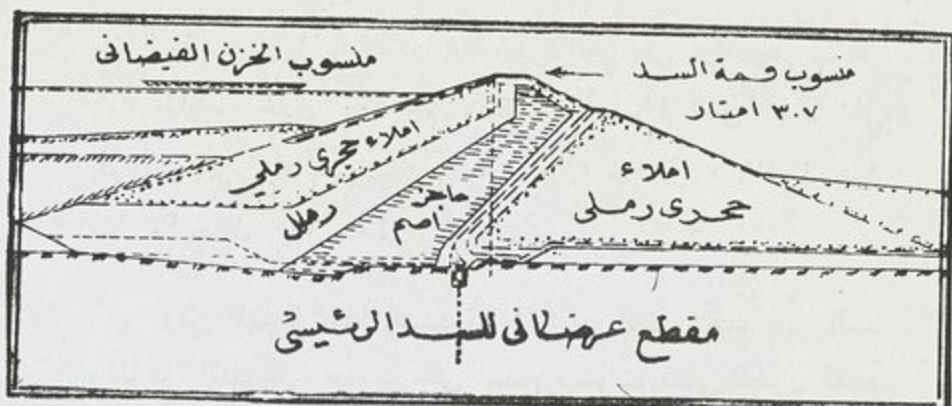 منسوب الخزن الفيضاني
منسوب قمة السد
٣٠٧ امتار
املاء حجري رملي
رمل
حاجز
اصم
املاء
حجري رملي
مقطع عرضاني للسد الرئيسي